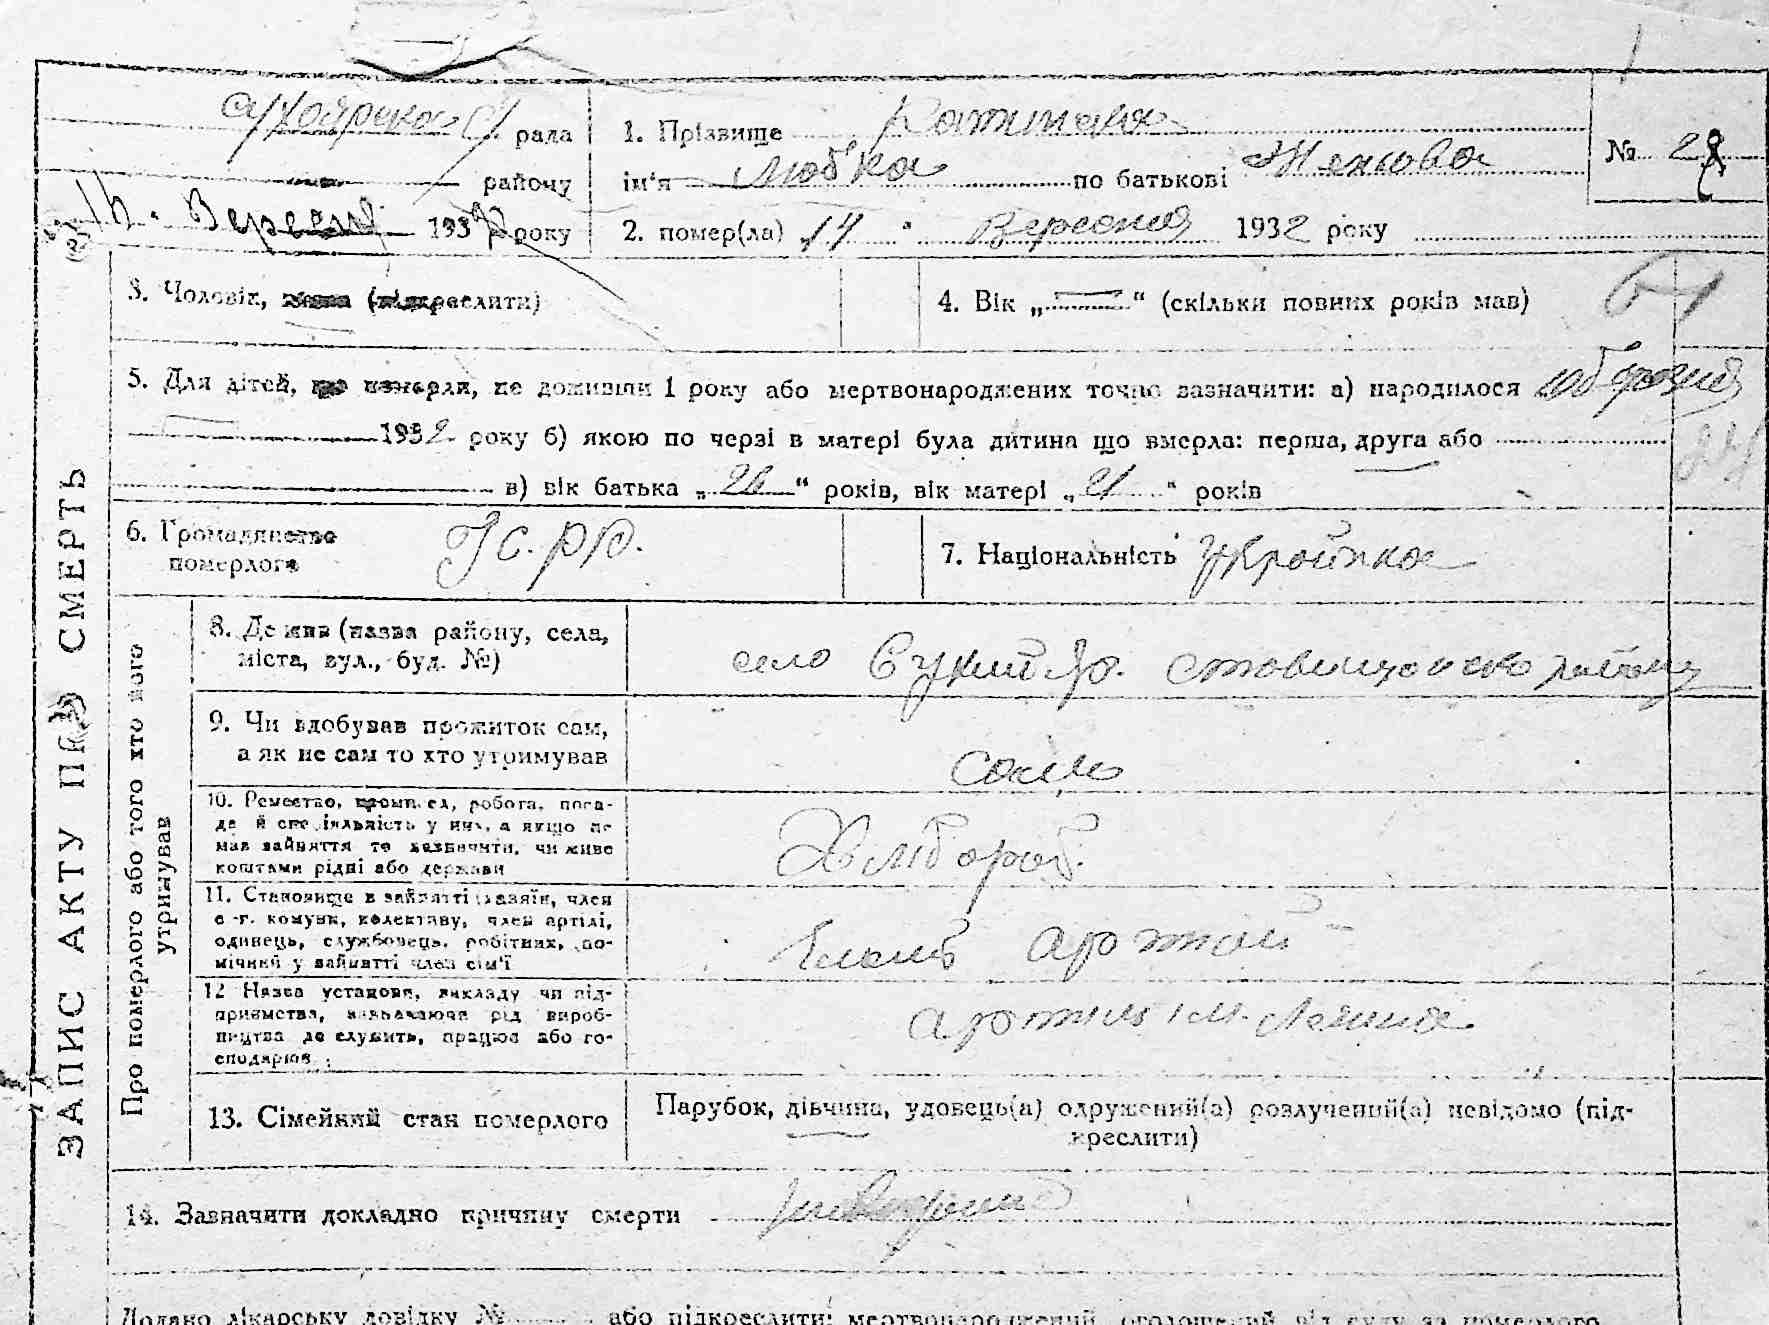 Сухоярска С/ рада
району
Вересня 1932 року
1. Прізвище
ім'я Любка по батькові
№ 28
2. помер(ла) 14 Вересня 1932 року
3. Чоловік, жінка (підкреслити)
4. Вік „ “ (скільки повних років мав)
5. Для дітей, що померли, не доживши 1 року або мертвонароджених точно зазначити: а) народилося
1932 року б) якою по черзі в матері була дитина що вмерла: перша, друга або
в) вік батька „26“ років, вік матері „21“ років
6. Громадянство
померлого
УСРР.
7. Національність Українка
ЗАПИС АКТУ ПРО СМЕРТЬ
Про померлого або того хто його
утримував
8. Де жив (назва району, села,
міста, вул., буд. №)
село Сухий Яр. Ставищанського району
9. Чи здобував прожиток сам,
а як не сам то хто утримував
10. Ремество, промисел, робота, поса-
да й спеціяльність у них, а якщо не
мав зайняття то зазначити, чи живе
коштами рідні або держави
Хлібороб.
11. Становище в зайнятті (хазяїн, член
с.-г. комуни, колективу, член артілі,
одинець, службовець, робітник, по-
мічний у зайнятті член сім'ї
12 Назва установи, закладу чи під-
приємства, зазначаючи рід вироб-
ництва де служить, працює або го-
сподарює
Артіль ім. Леніна
13. Сімейний стан померлого
Парубок, дівчина, удовець(а) одружений(а) розлучений(а) невідомо (під-
креслити)
14. Зазначити докладно причину смерти
Додано лікарську довідку № або підкреслити: мертвонароджений, оголошений від суду за померлого